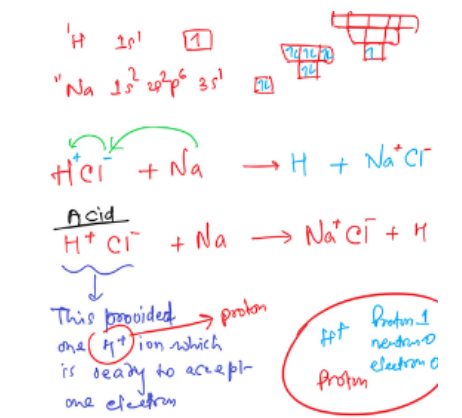 ¹H 1s¹ 1
¹¹Na 1s² 2s²p⁶ 3s¹ 1L
1L 1L 1L
1L
1
H⁺Cl⁻ + Na → H + Na⁺Cl⁻
Acid
H⁺ Cl⁻ + Na → Na⁺Cl⁻ + H
This provided
one H⁺ ion which
is ready to accept-
one electron
proton
H⁺ Proton 1
neutron 0
electron 0
Proton